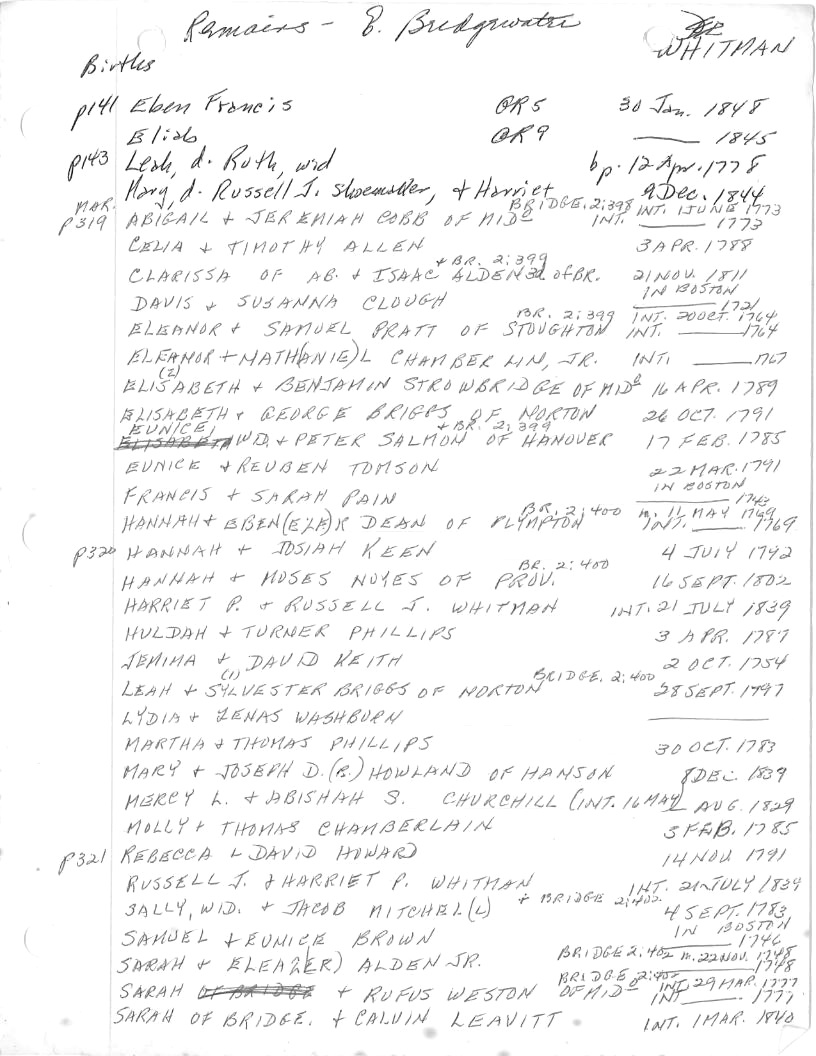 Remains - E. Bridgewater
WHITMAN
Births
p141 Eben Francis OR5 30 Jan. 1848
Eliab OR9 —— 1845
p143 Leah, d. Ruth, wid bp. 12 Apr. 1778
Mary, d. Russell J. shoemaker, + Harriet 9 Dec. 1844
MAR. BRIDGE. 2;398 INT. 1 JUNE 1773
p319 ABIGAIL + JEREMIAH COBB OF MIDº INT. —— 1773
CELIA + TIMOTHY ALLEN 3 APR. 1788
+ BR. 2;399
CLARISSA OF AB. + ISAAC ALDEN 3d of BR. 21 NOV. 1811
IN BOSTON
DAVIS + SUSANNA CLOUGH —— 1721
BR. 2;399 INT. 20 OCT. 1764
ELEANOR + SAMUEL PRATT OF STOUGHTON INT. —— 1764
ELEANOR + NATH(ANIE)L CHAMBERLIN, JR. INT. —— 1767
(2)
ELISABETH + BENJAMIN STROWBRIDGE OF MIDº 16 APR. 1789
ELISABETH + GEORGE BRIGGS OF NORTON 26 OCT. 1791
EUNICE, + BR. 2;399
WD. + PETER SALMON OF HANOVER 17 FEB. 1785
EUNICE + REUBEN TOMSON 22 MAR. 1791
IN BOSTON
FRANCIS + SARAH PAIN —— 1743
BR. 2;400 m. 11 MAY 1769
HANNAH + EBEN(EZE)R DEAN OF PLYMPTON INT. —— 1769
p320 HANNAH + JOSIAH KEEN 4 JULY 1742
BR. 2;400
HANNAH + MOSES NOYES OF PROV. 16 SEPT. 1802
HARRIET P. + RUSSELL J. WHITMAN INT. 21 JULY 1839
HULDAH + TURNER PHILLIPS 3 APR. 1787
JEMIMA + DAVID KEITH 2 OCT. 1754
(1) BRIDGE. 2;400
LEAH + SYLVESTER BRIGGS OF NORTON 28 SEPT. 1797
LYDIA + ZENAS WASHBURN ——
MARTHA + THOMAS PHILLIPS 30 OCT. 1783
MARY + JOSEPH D. (B.) HOWLAND OF HANSON 8 DEC. 1839
MERCY L. + ABISHAH S. CHURCHILL (INT. 16 MAY) 2 AUG. 1829
MOLLY + THOMAS CHAMBERLAIN 3 FEB. 1785
p321 REBECCA + DAVID HOWARD 14 NOV. 1791
RUSSELL J. + HARRIET P. WHITMAN INT. 21 JULY 1839
+ BRIDGE 2;402
SALLY, WID. + JACOB MITCHEL(L) 4 SEPT. 1783
IN BOSTON
SAMUEL + EUNICE BROWN —— 1746
BRIDGE 2;402 m. 22 NOV. 1748
SARAH + ELEAZ(ER) ALDEN JR. —— 1748
BRIDGE 2;402 INT. 29 MAR. 1777
SARAH OF BRIDGE + RUFUS WESTON OF MIDº INT —— 1777
SARAH OF BRIDGE. + CALVIN LEAVITT INT. 1 MAR. 1840